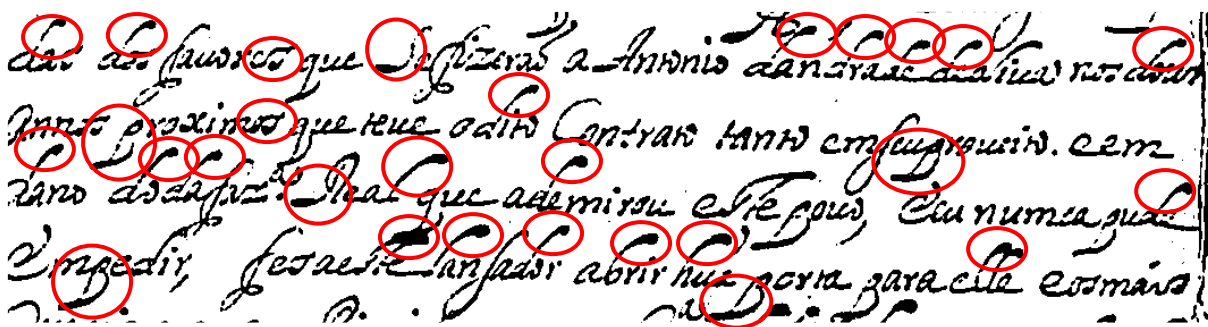 das dos favores que se fizerão a Antonio dandrade dealua nos dous
annos proximos que teue o dito Contrato tanto em seu proueito. e em
dano dos da faz.ª Real que ademirou este pouo, e eu numca pude
empedir, fes a este lansador abrir hũa porta para elle e os mais